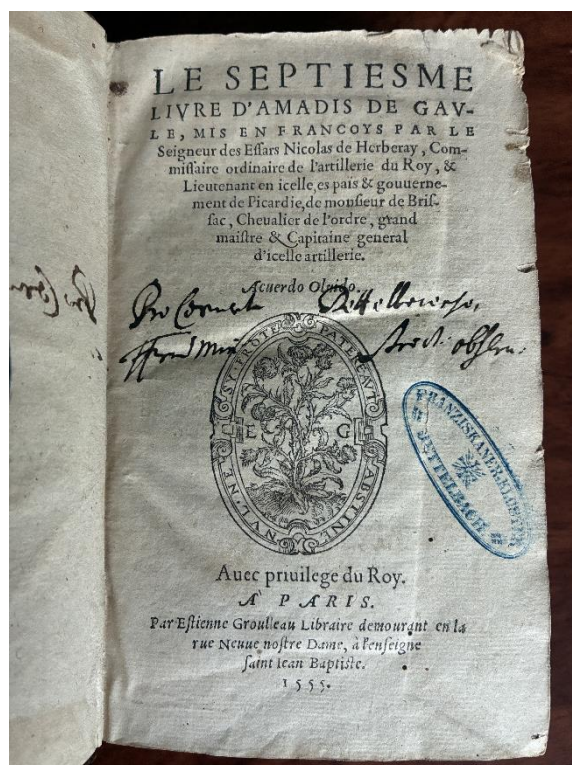 LE SEPTIESME
LIVRE D'AMADIS DE GAV-
LE, MIS EN FRANCOYS PAR LE
Seigneur des Essars Nicolas de Herberay, Com-
missaire ordinaire de l'artillerie du Roy, &
Lieutenant en icelle, es païs & gouuerne-
ment de Picardie, de monsieur de Bris-
sac, Cheualier de l'ordre, grand
maistre & Capitaine general
d'icelle artillerie.
Acuerdo Oluido.
Pro Conuentu
NVL NE S'Y FROTE
E G
FRANZISKANER-KLOSTER
DETTELBACH
Auec priuilege du Roy.
A PARIS.
Par Estienne Groulleau Libraire demourant en la
rue Neuue nostre Dame, à l'enseigne
saint Iean Baptiste.
1555.